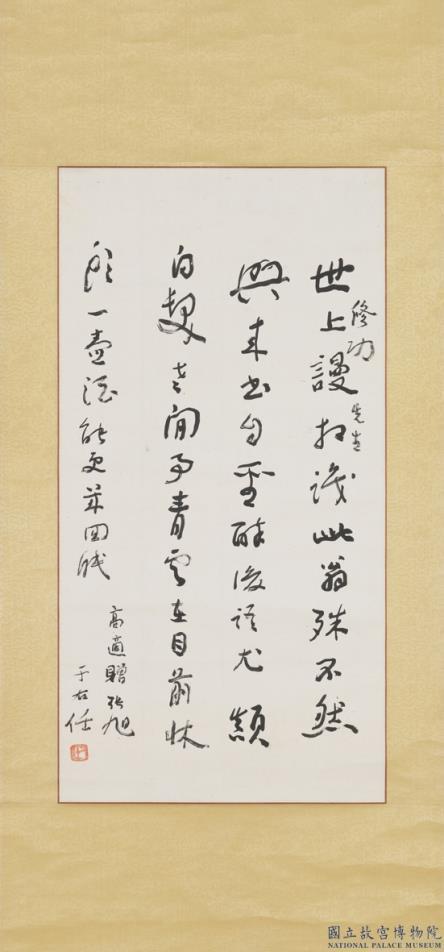 世上謾相識此翁殊不然
興來書自聖醉後語尤顛
白髮老閒事青雲在目前牀
頭一壺酒能更幾回眠
修功先生
高適贈張旭
于右任
國立故宮博物院
NATIONAL PALACE MUSEUM